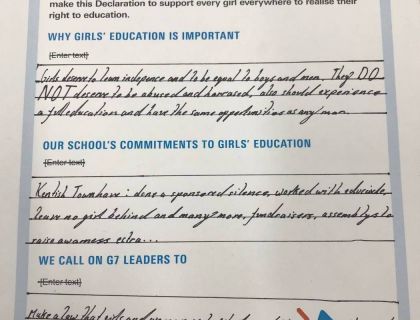 make this Declaration to support every girl everywhere to realise their
right to education.
WHY GIRLS' EDUCATION IS IMPORTANT
[Enter text]
Girls deserve to learn indepence and to be equal to boys and men. They DO
NOT deserve to be abused and harrased, also should experience
a full education and have the same oppertunities as any man
OUR SCHOOL'S COMMITMENTS TO GIRLS' EDUCATION
[Enter text]
Kentish Town have: done a sponsored silence, worked with educaide,
leave no girl behind and many more, fundraisers, assemblys to
raise awarness ectra...
WE CALL ON G7 LEADERS TO
[Enter text]
Make a law that girls and